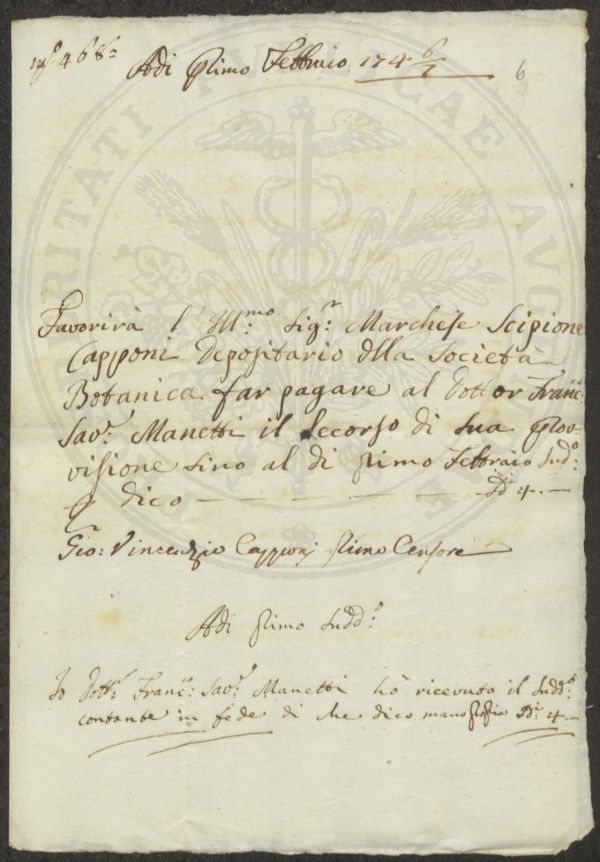 468
6
Adì Primo Febbraio 174 6/7
Favorirà l'Ill.mo Sig.r Marchese Scipione
Capponi Depositario dlla Società
Botanica far pagare al Dottor Franc.
Sav.o Manetti il decorso di sua Prov-
visione sino al dì primo Febbraio Sud.o
p dico — — — — — 4. —
Gio: Vincenzio Capponi Primo Censore
Adì Primo Sudd.o
Io Dott.r Franc.o Sav.o Manetti hò ricevuto il Sudd.o
contante in fede di che dico mano propria 4. —